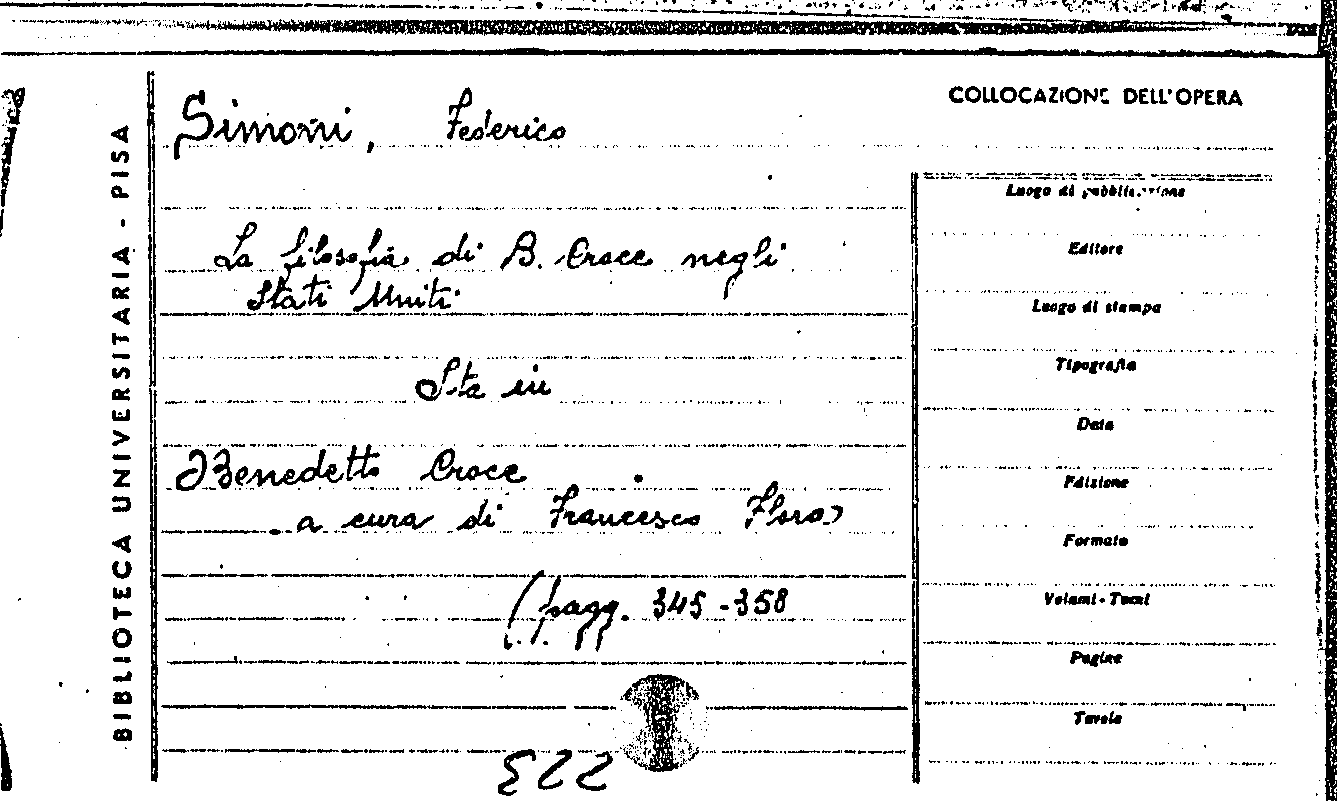 COLLOCAZIONE DELL'OPERA
BIBLIOTECA UNIVERSITARIA - PISA
Simoni, Federico
La filosofia di B. Croce negli
Stati Uniti
Sta in
Benedetto Croce
a cura di Francesco Flora
(pagg. 345-358
Luogo di pubblicazione
Editore
Luogo di stampa
Tipografia
Data
Edizione
Formato
Volumi - Tomi
Pagine
Tavole